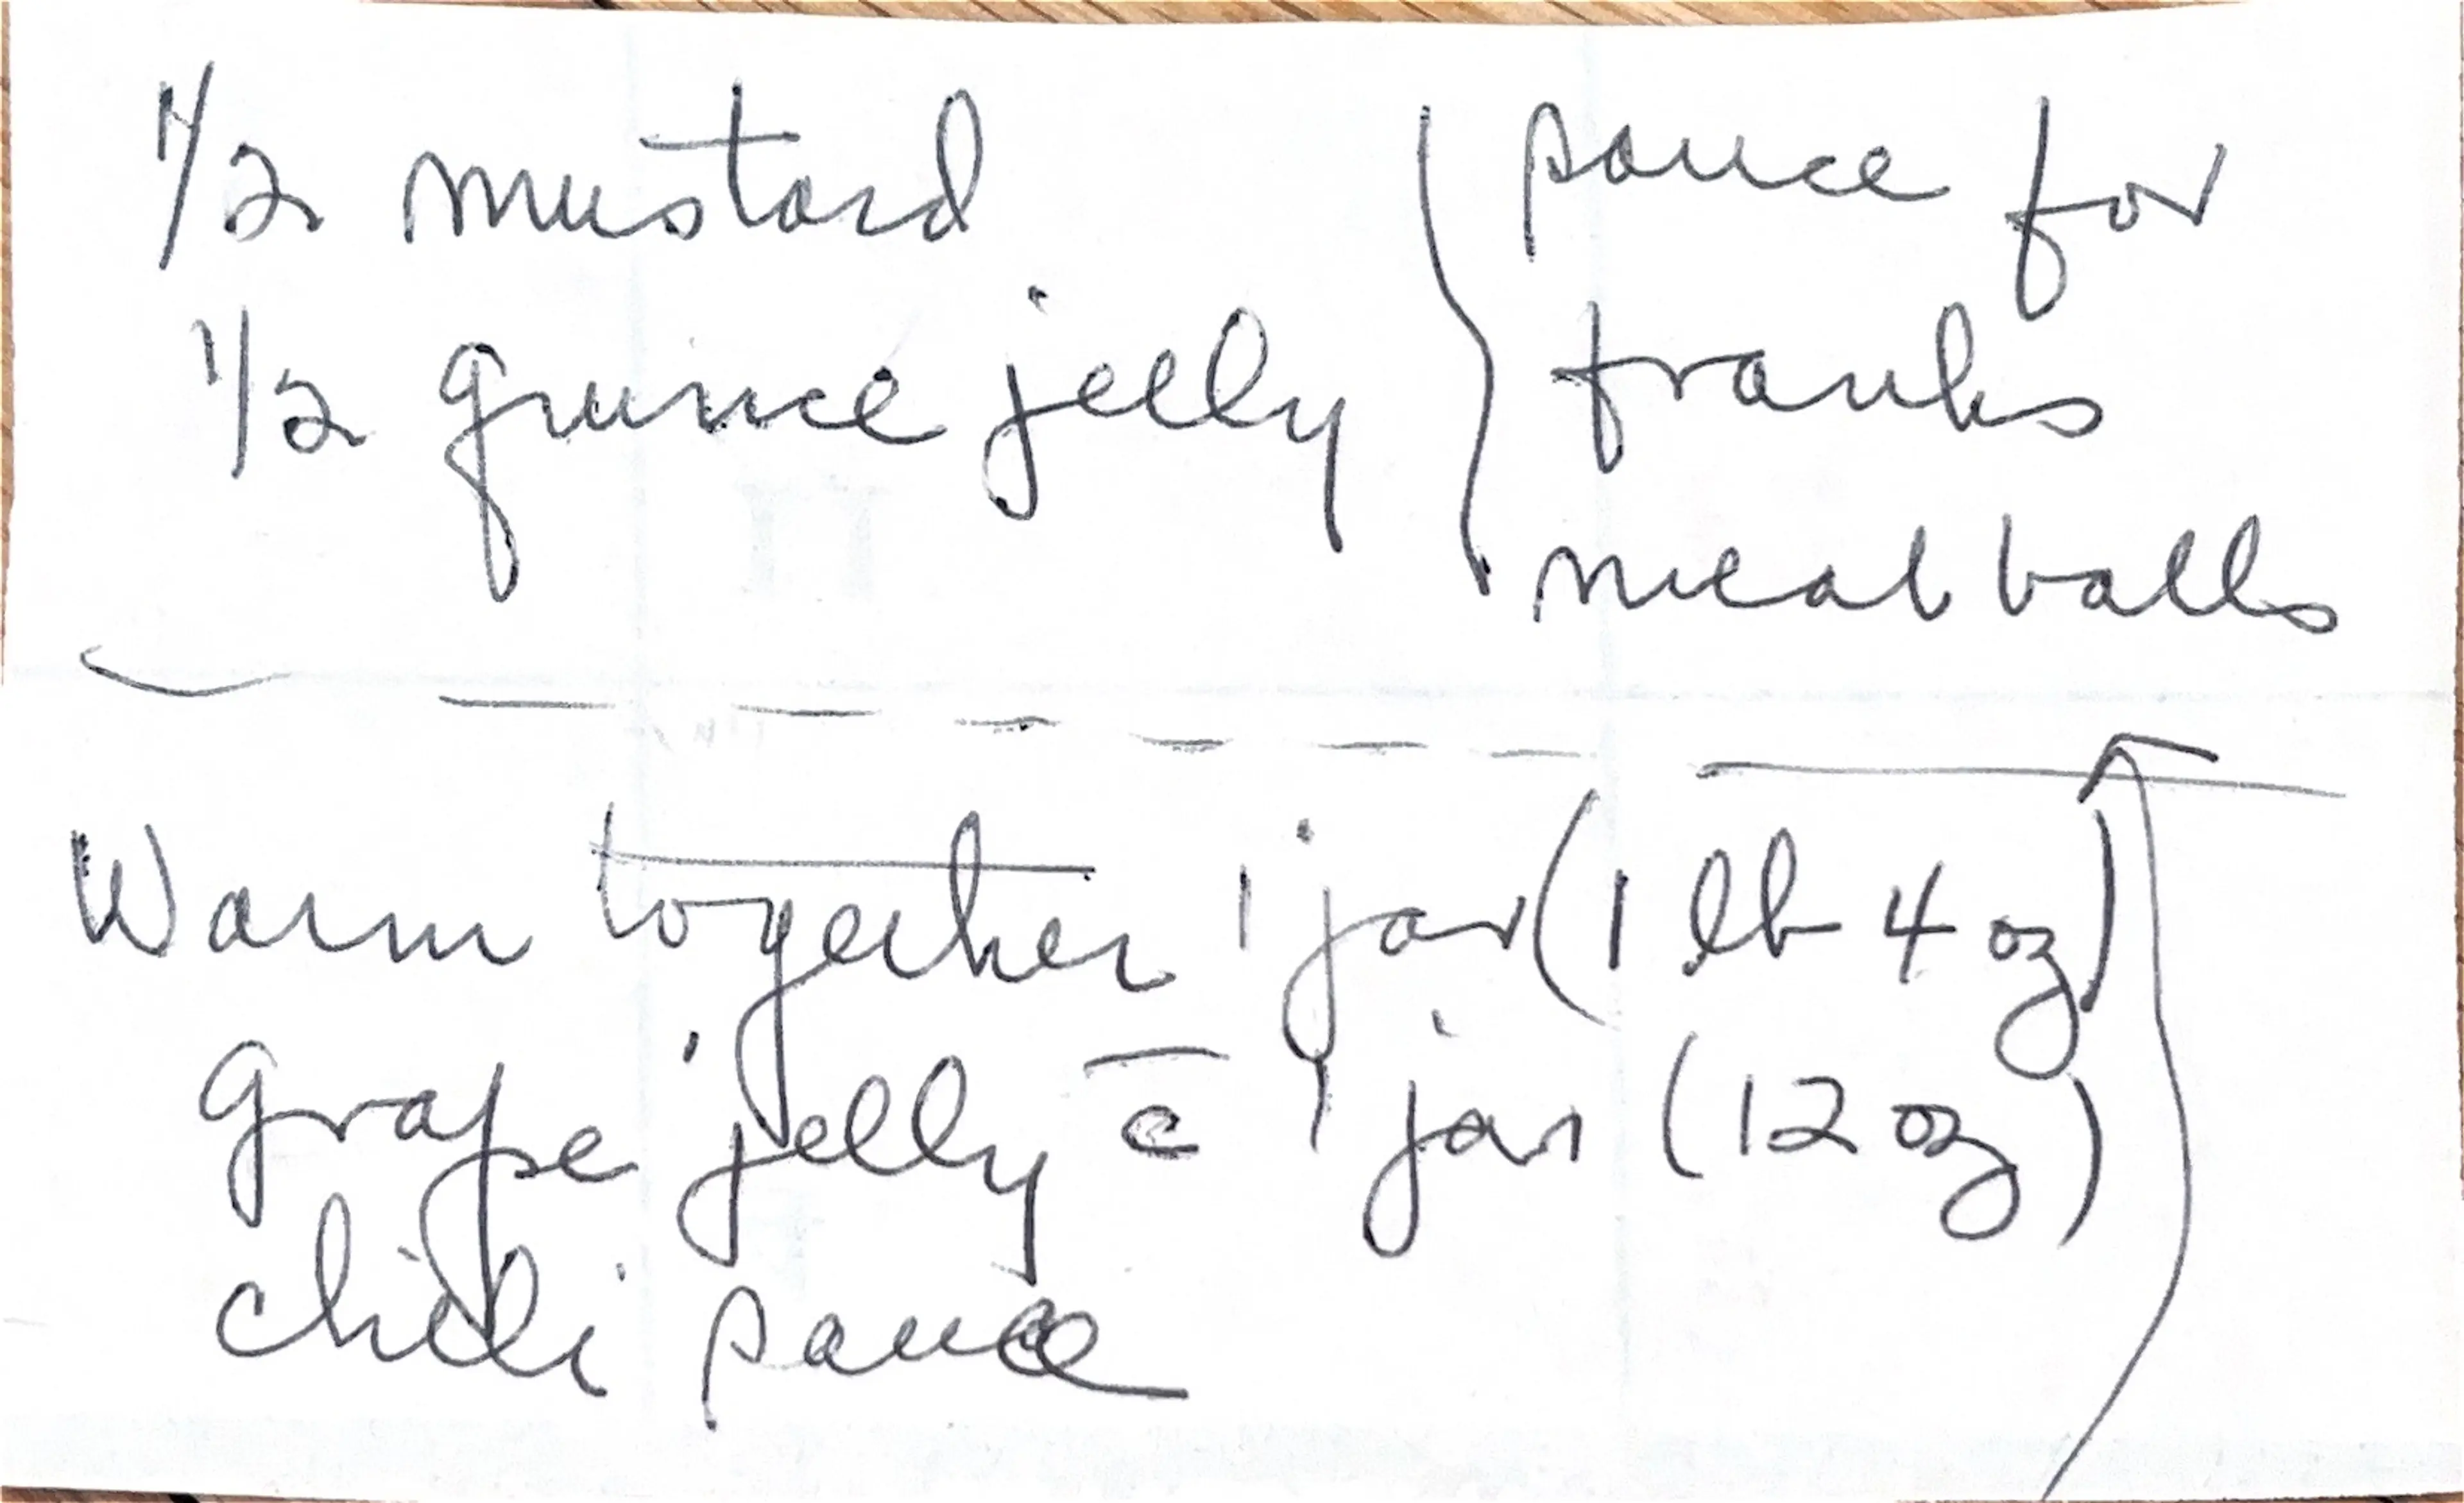 1/2 mustard
1/2 quince jelly
sauce for
franks
meat balls
Warm together 1 jar (1 lb 4 oz)
grape jelly c̄ 1 jar (12 oz)
chili sauce